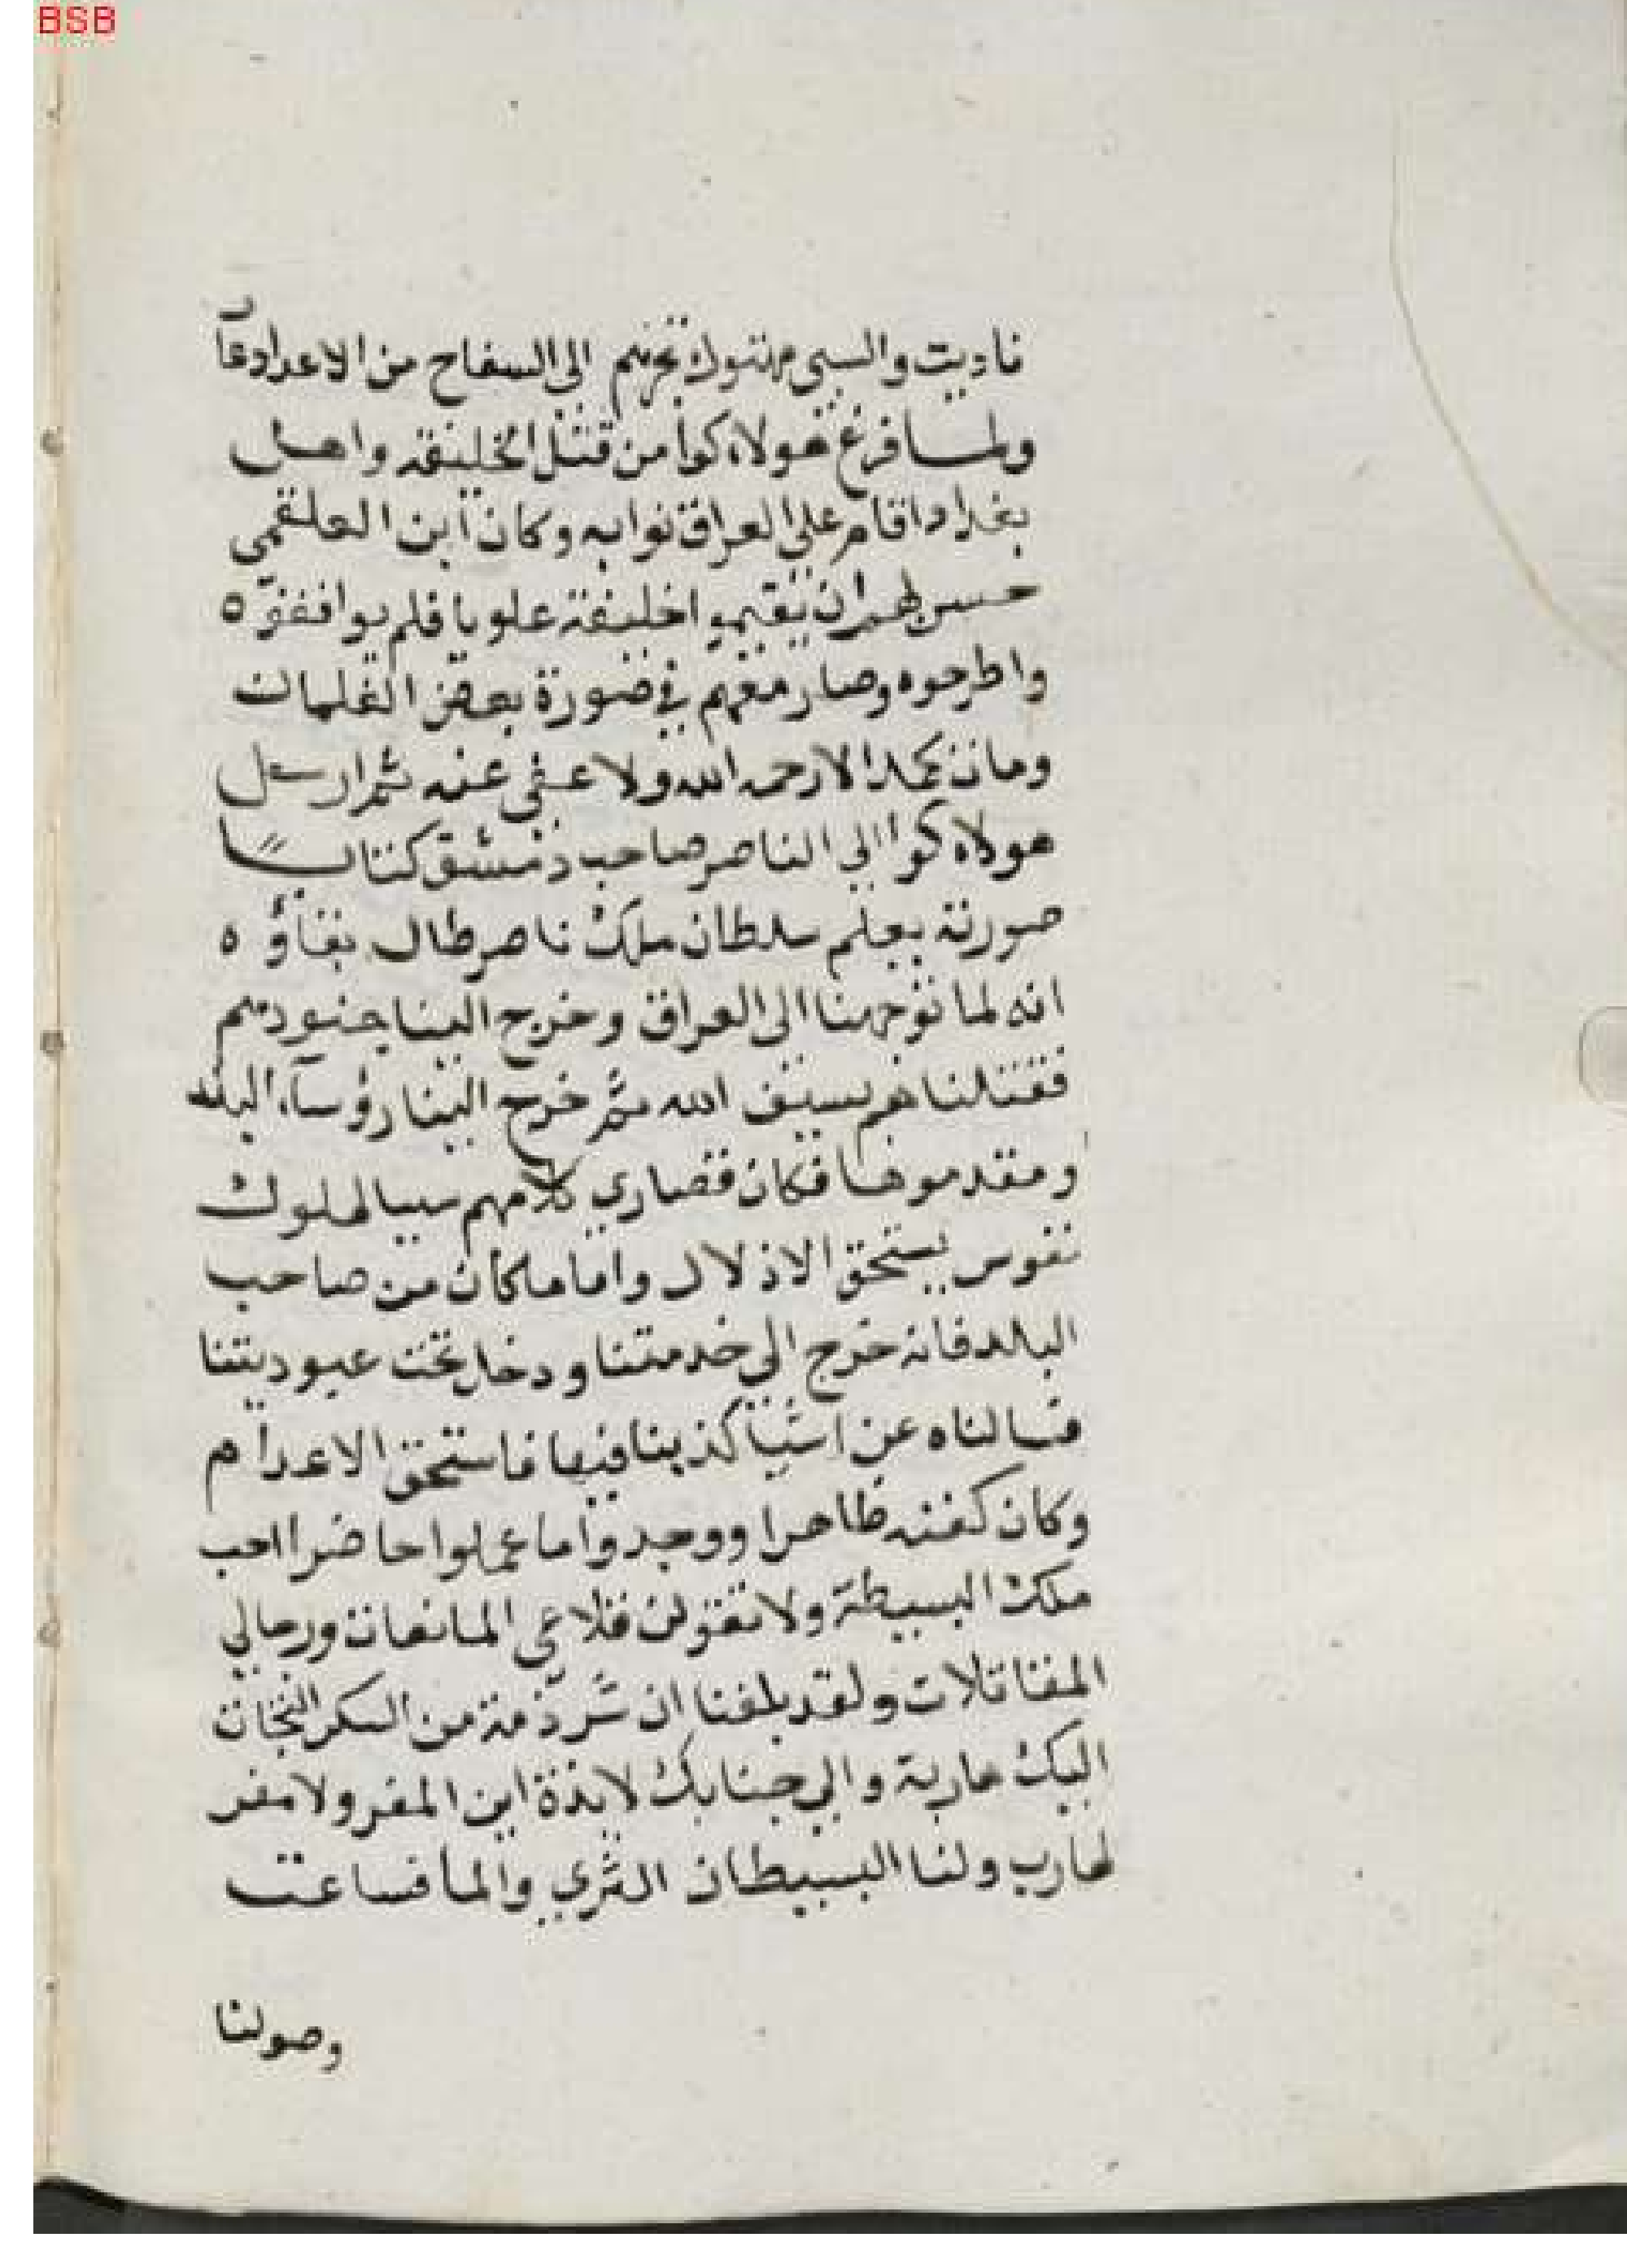 BSB
ناديت والسبي مهتوك تجرهم الى السفاح من الاعدا دعآ
ولما فرغ هولاه كوا من قتل الخليفه واهل
بغداد اقام على العراق نوابه وكان ابن العلقمي
حسن لهم ان يقيموا خليفة علويا فلم يوافقوه
واطرحوه وصار معهم في صورة بعض الغلمان
ومات كمدا لا رحمه الله ولا عفى عنه ثم ارسل
هولاه كوا الي الناصر صاحب دمشق كتابا
صورته يعلم سلطان ملك ناصر طال بقاؤه
انه لما توجهنا الى العراق وخرج الينا جنودهم
فقتلناهم بسيف الله ثم خرج الينا رؤسآء البلد
ومقدموها فكان قصاري كلامهم سببا لهلوك
نفوس يستحق الاذلال واما ما كان من صاحب
البلد فانه خرج الي خدمتنا ودخل تحت عبوديتنا
فسالناه عن اشيا كذبنا فيها فاستحق الاعدام
وكان كفنه ظاهرا ووجدوا ما عملوا حاضرا اجب
ملك البسيطة ولا تقولن قلاعى المانعات ورجالي
المقاتلات ولقد بلغنا ان شرذمة من العسكر التجات
اليك هاربة والي جنابك لايذة اين المفر ولا مفر
لهارب ولنا البسيطان الثري والما فساعة
وصولنا